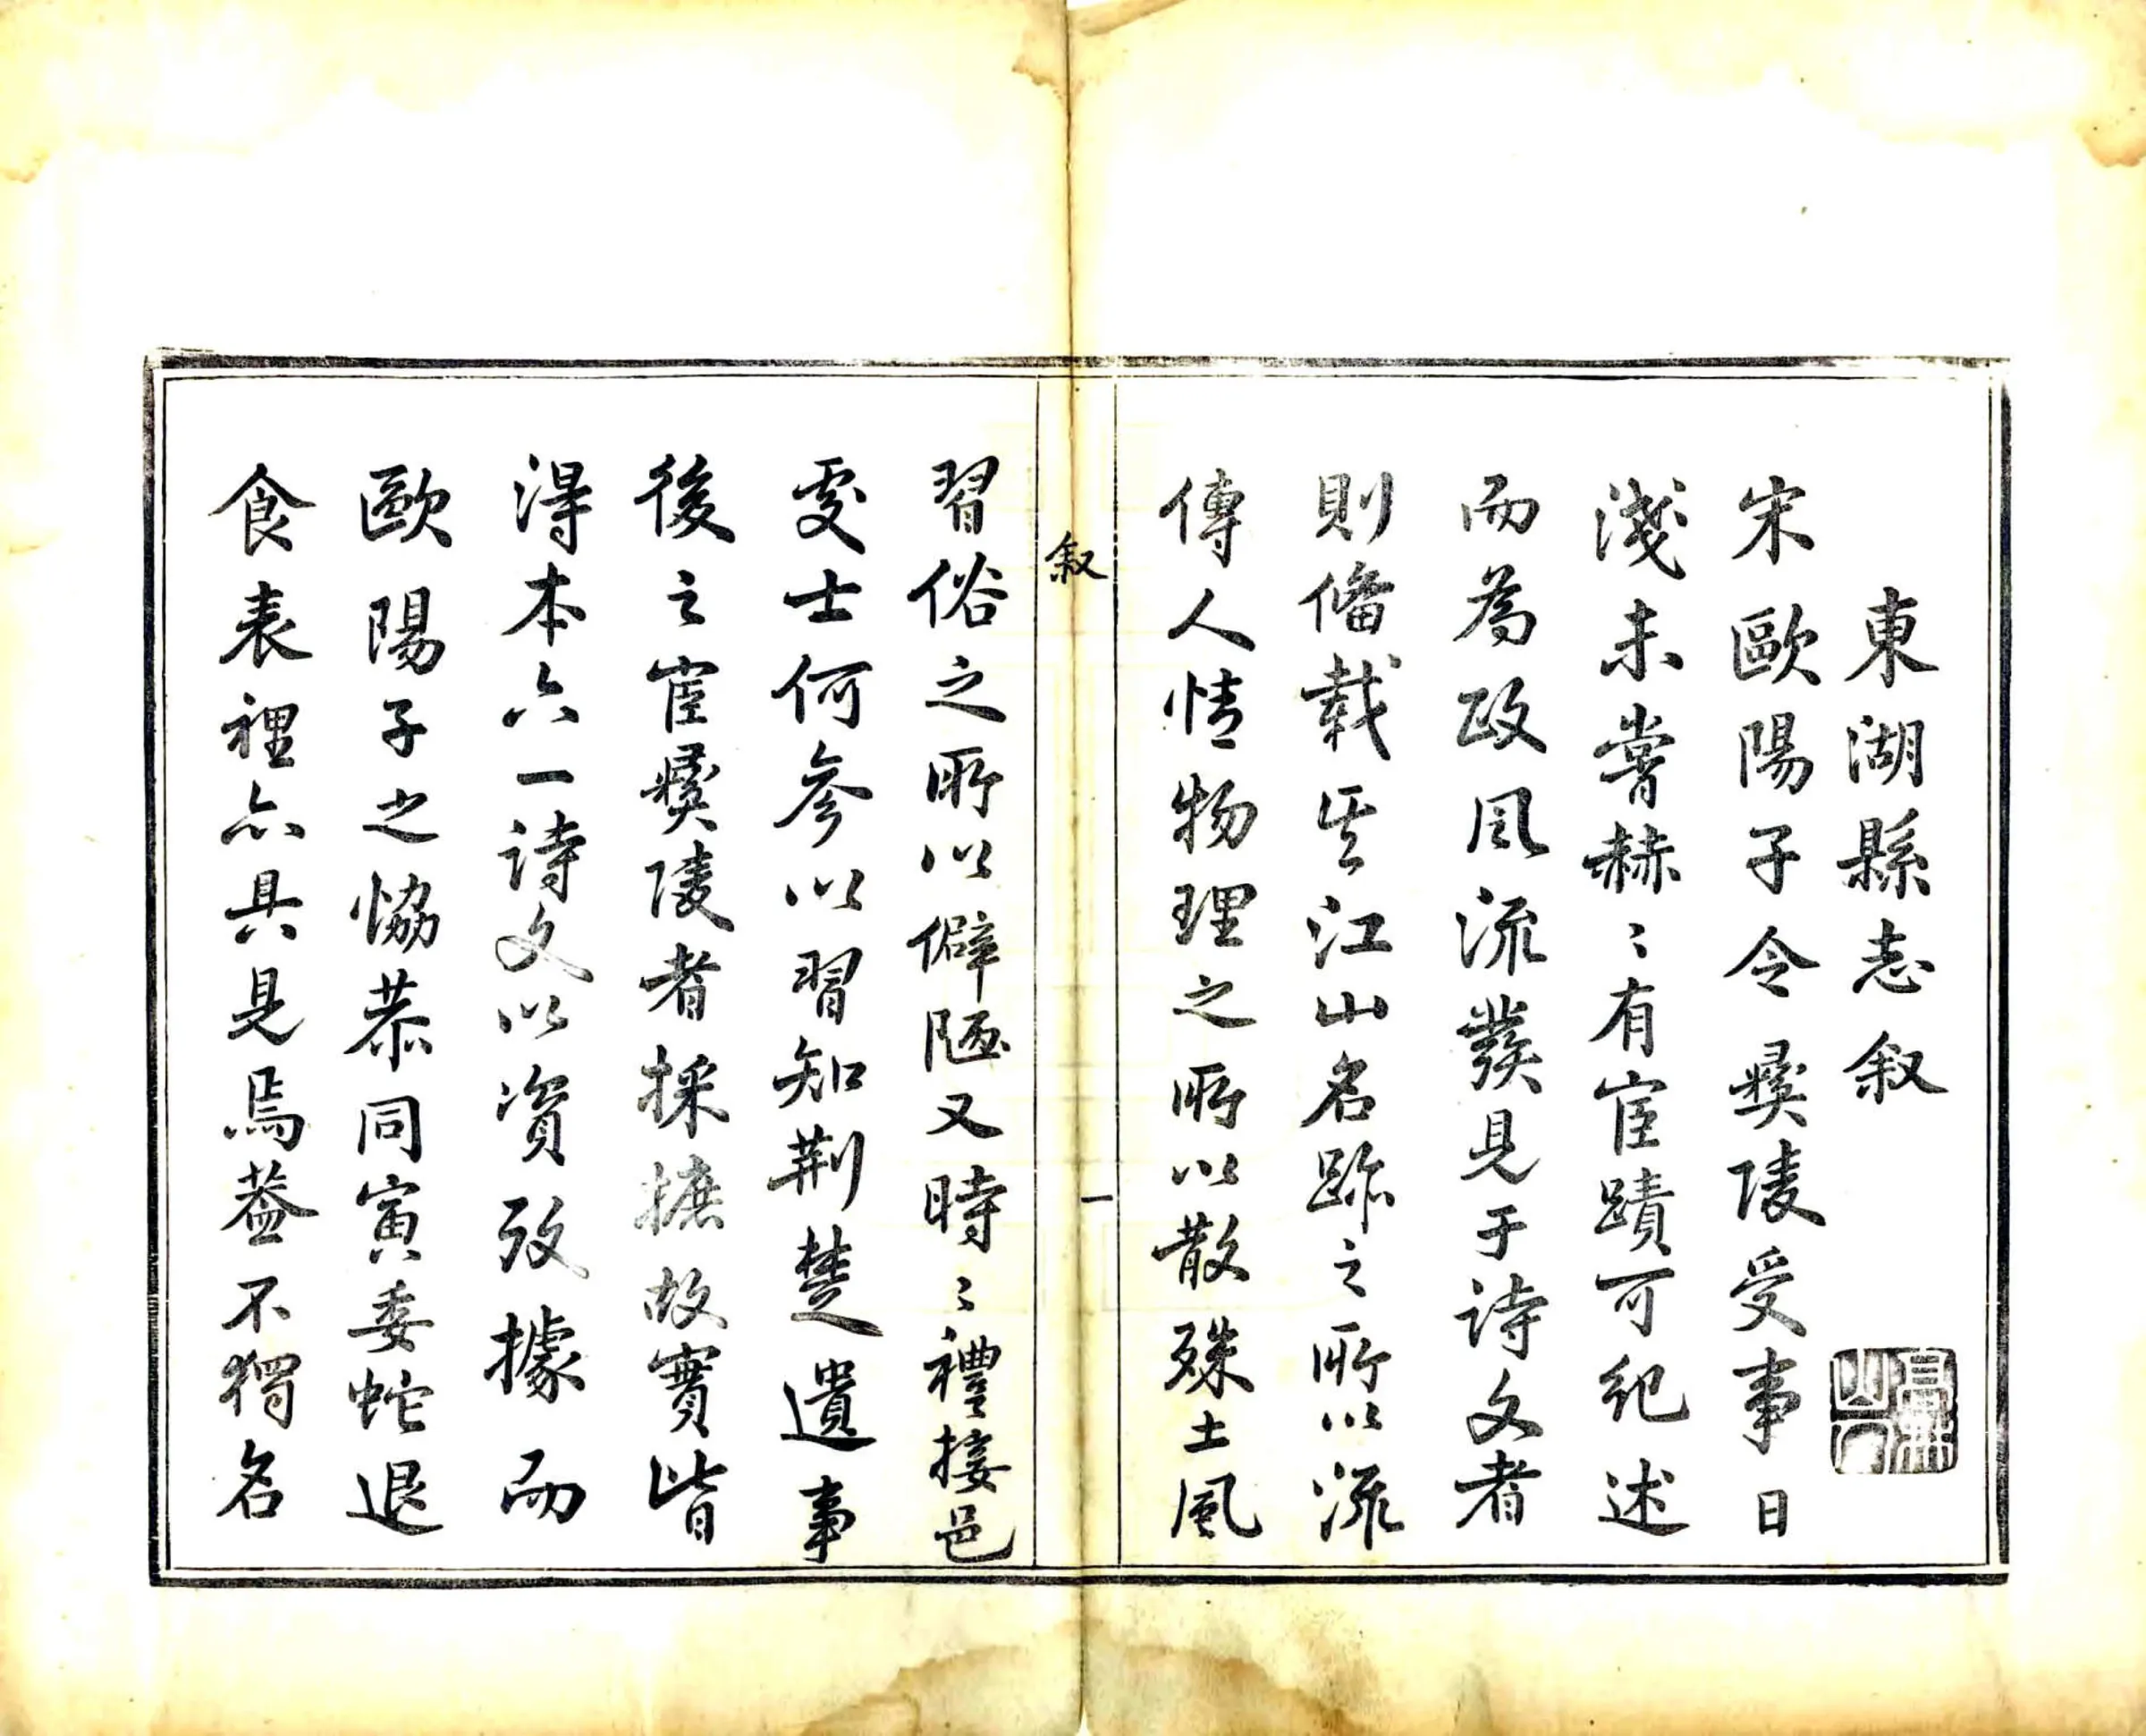 東湖縣志叙
宋歐陽子令彝陵受事日
淺未嘗赫〻有宦蹟可紀述
而為政風流發見于詩文者
則備載其江山名跡之所以流
傳人情物理之所以散殊土風
叙
一
習俗之所以僻陋又時〻禮接邑
處士何參以習知荆楚遺事
後之宦彝陵者採摭故實皆
得本六一詩文以資攷據而
歐陽子之恊恭同寅委蛇退
食表裡亦具見焉葢不獨名